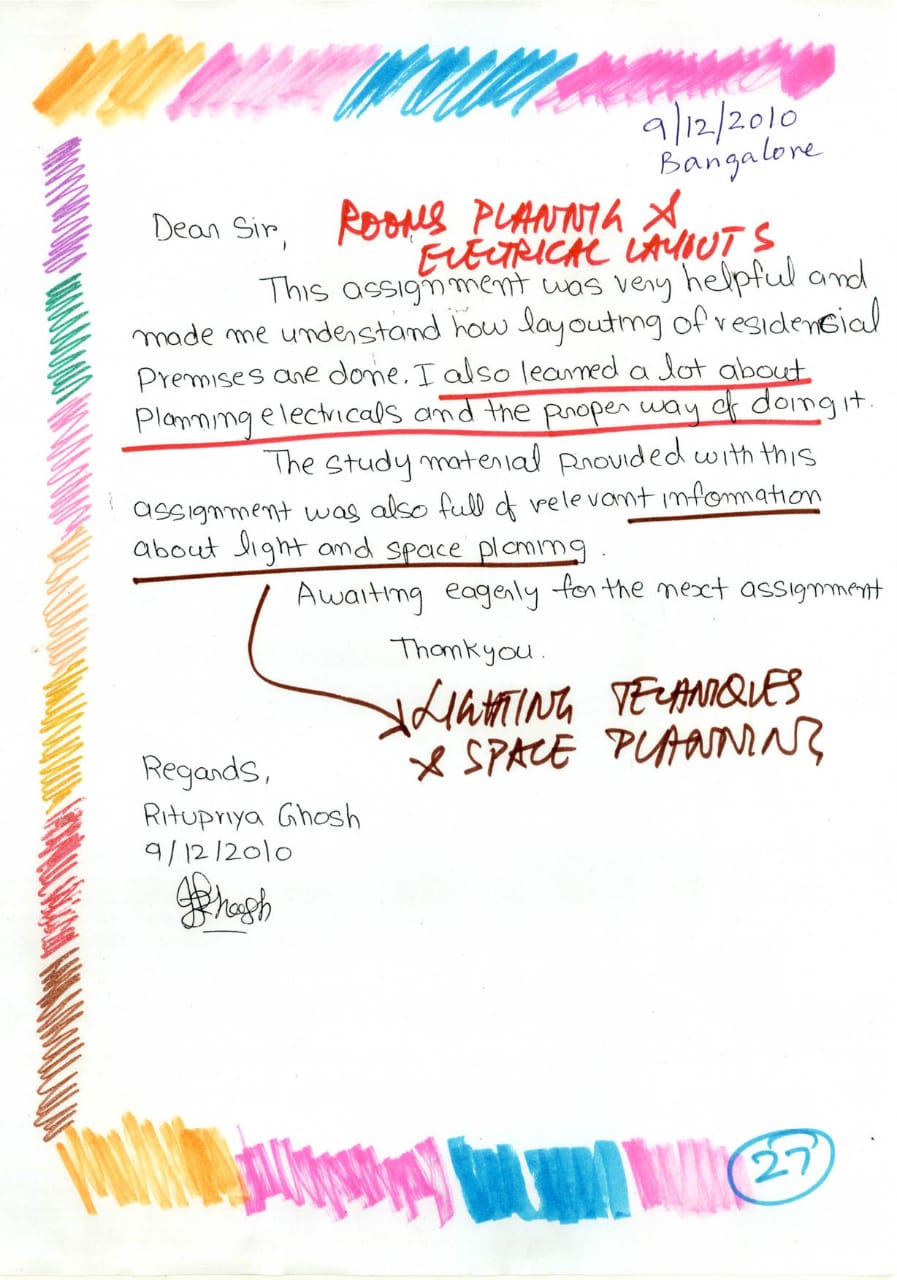 9/12/2010
Bangalore
Dear Sir,
ROOMS PLANNING &
ELECTRICAL LAYOUTS
This assignment was very helpful and
made me understand how layouting of residencial
Premises are done. I also learned a lot about
Planning electricals and the proper way of doing it.
The study material provided with this
assignment was also full of relevant information
about light and space planing.
Awaiting eagerly for the next assignment
Thankyou.
LIGHTING TECANIQUES
& SPACE PLANNING
Regards,
Ritupriya Ghosh
9/12/2010
Ghosh
27